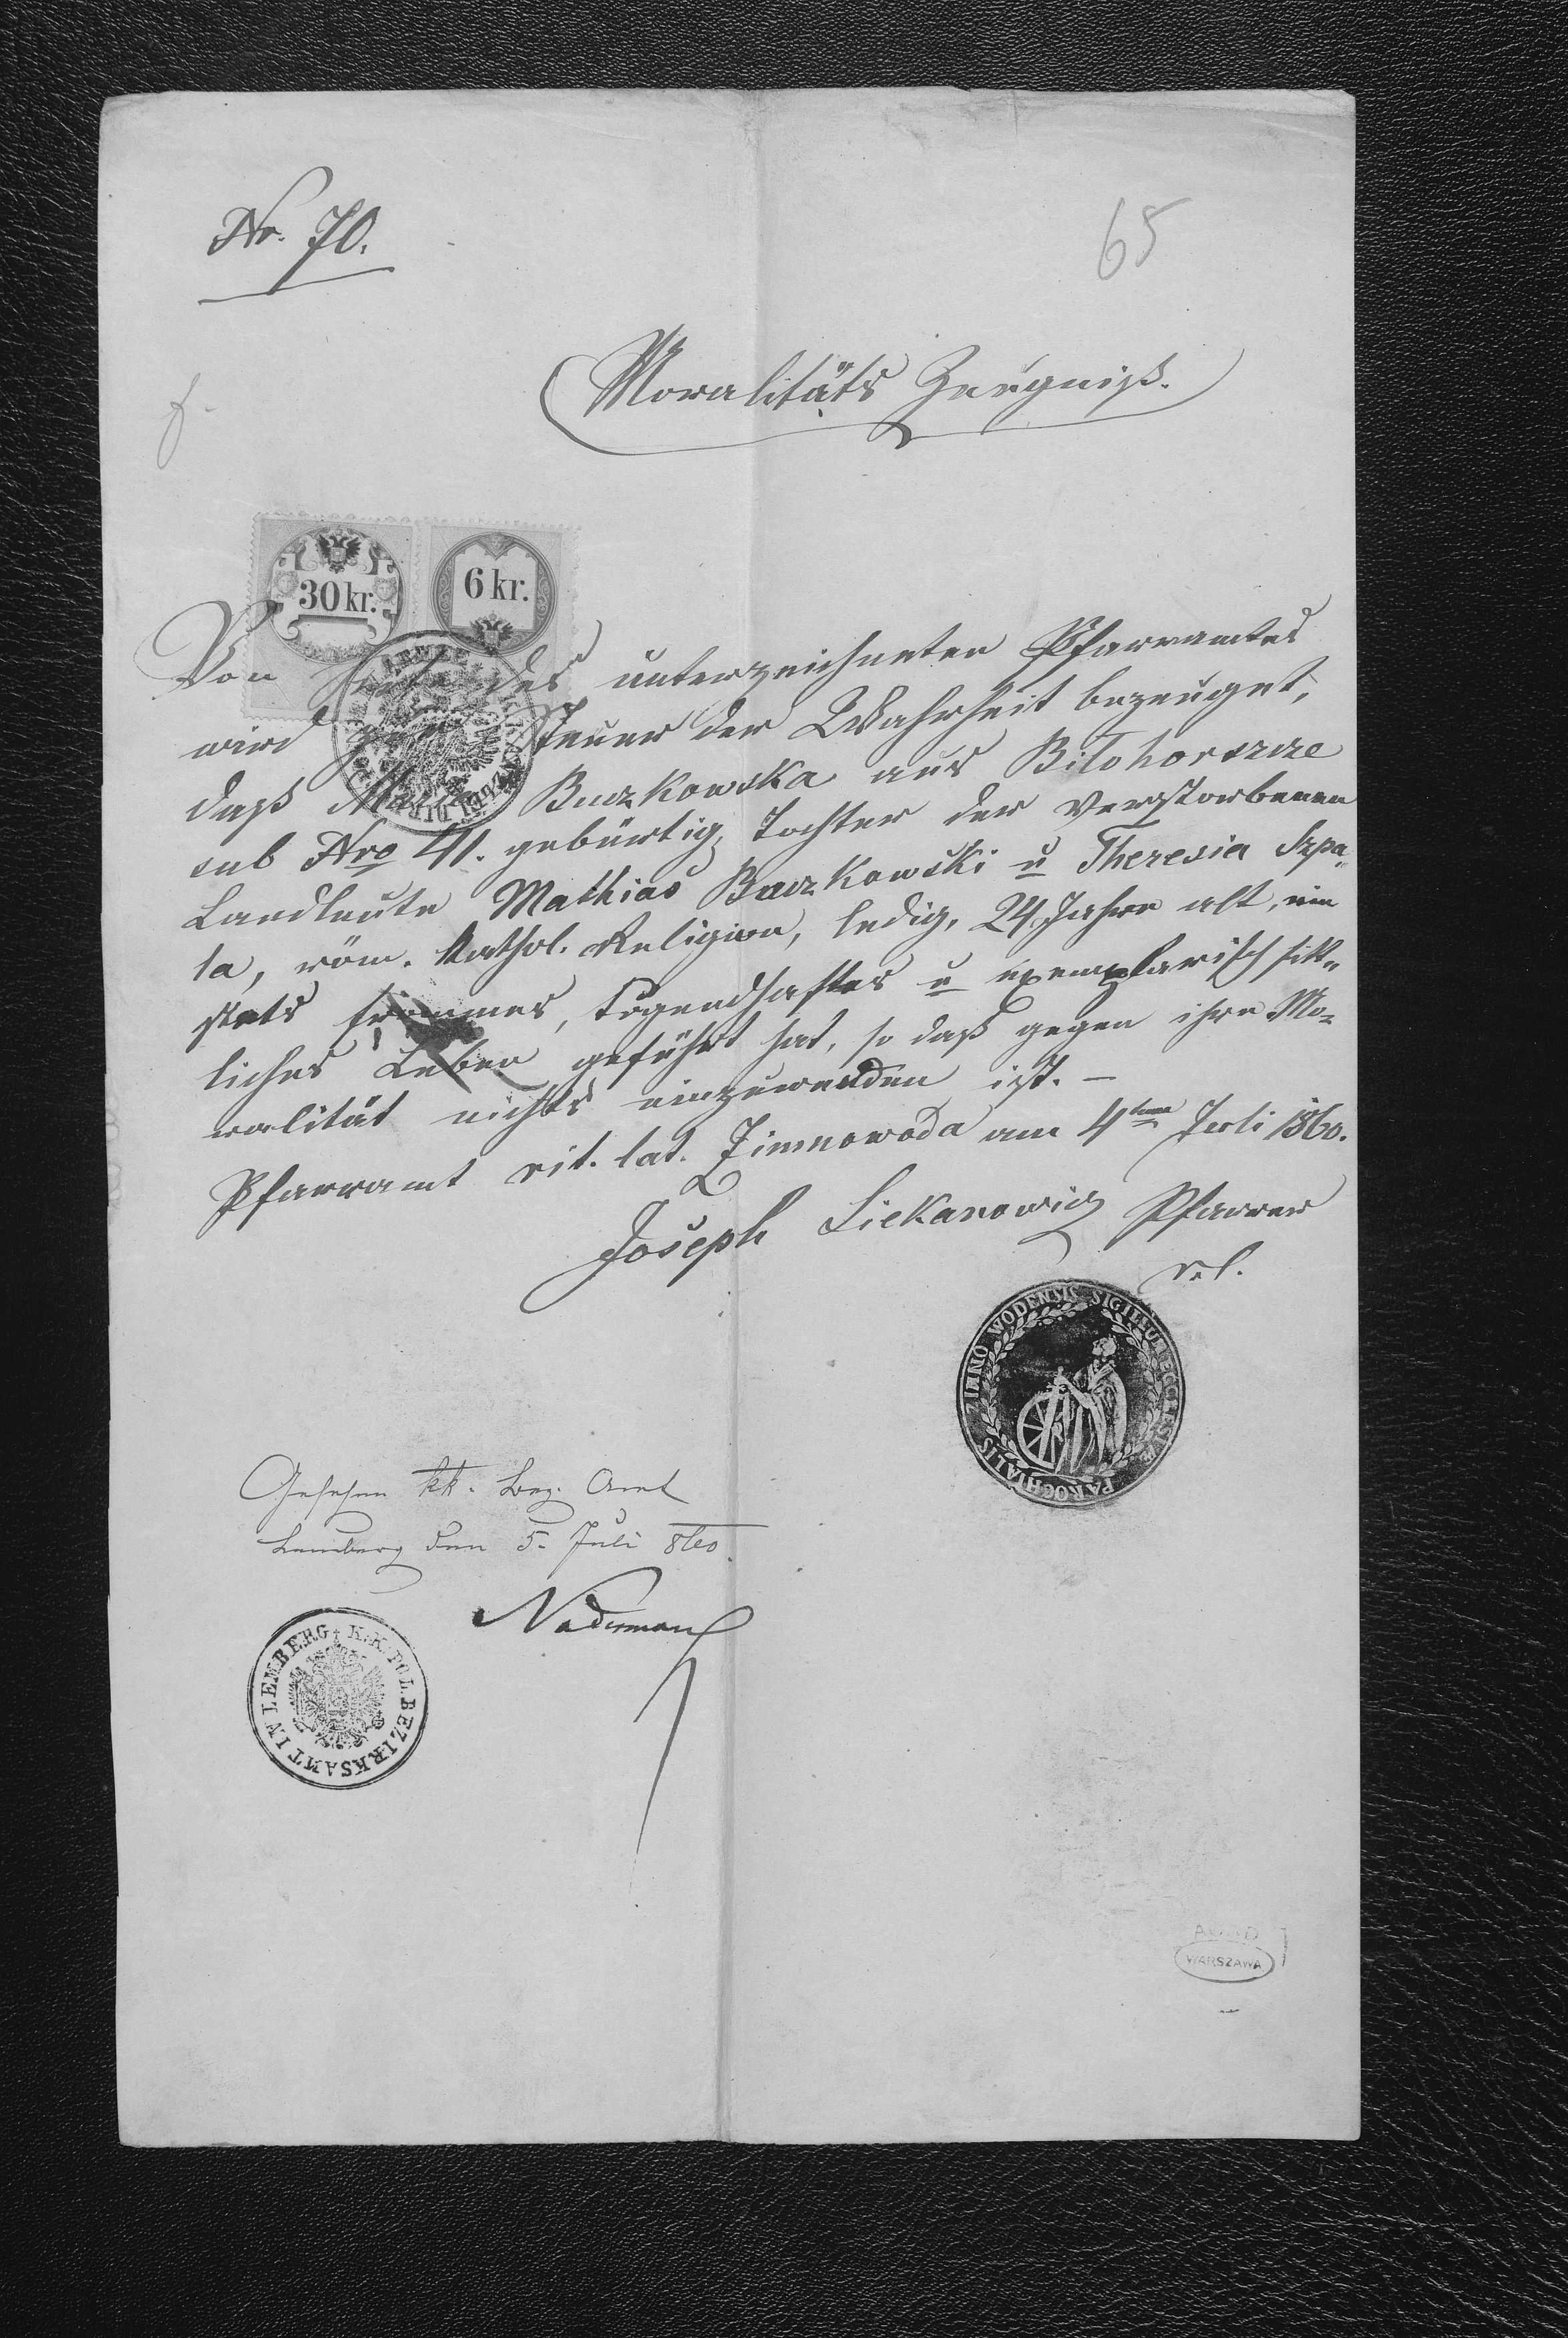 Nr. 70.
65
Moralitäts Zeugniß.
30 kr.
6 kr.
Von Seite des unterzeichneten Pfarramtes
wird zur Steuer der Wahrheit bezeuget,
daß Maria Buczkowska aus Biłohorszcze
sub Nro 41. gebürtig, Tochter der verstorbenen
Landleute Mathias Buczkowski u Theresia Szpa„
la, röm. kathol. Religion, ledig, 24 Jahre alt, ein
stets frommes, tugendhaftes u exemplarisch sitt„
liches Leben geführt hat, so daß gegen ihre Mo„
ralität nichts einzuwenden ist. –
Pfarramt rit. lat. Zimnowoda am 4ten Juli 1860.
Joseph Siekanowicz Pfarrer
r. l.
SIGILLUM ECCLESIAE PAROCHIALIS ZIMNO WODENSIS
Gesehen kk. Bez. Amt
Lemberg den 5. Juli 860
K. K. POL. BEZIRKSAMT IN LEMBERG
AGAD
WARSZAWA